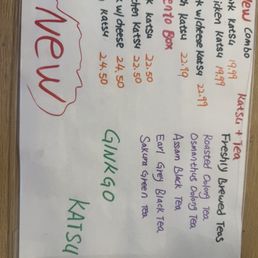 New Combo
Katsu + Tea
k Katsu 19.99
icken Katsu 19.99
k w/cheese Katsu 22.99
sh Katsu 22.90
ento Box
k katsu 22.50
chen Katsu 22.50
k w/cheese 24.50
h Katsu 24.50
Freshly Brewed Teas
Roasted Oolong Tea
Osmanthus Oolong Tea
Assam Black Tea
Earl Grey Black Tea
Sakura Green Tea
NEW
GINKGO
KATSU